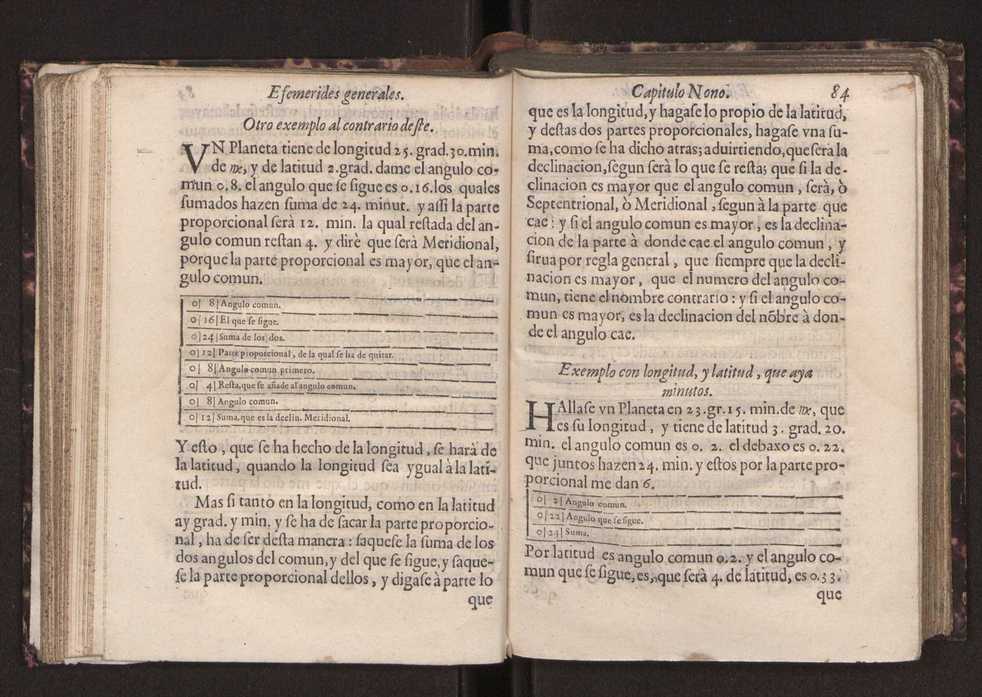 Efemerides generales.
Otro exemplo al contrario deste.
VN Planeta tiene de longitud 25. grad. 30. min.
de ♍, y de latitud 2. grad. dame el angulo co-
mun 0,8. el angulo que se sigue es 0.16. los quales
sumados hazen suma de 24. minut. y assi la parte
proporcional serà 12. min. la qual restada del an-
gulo comun restan 4. y dirè que serà Meridional,
porque la parte proporcional es mayor, que el an-
gulo comun.
0| 8| Angulo comun.
0| 16| El que se sigue.
0| 24| Suma de los dos.
0| 12| Parte proporcional, de la qual se ha de quitar.
0| 8| Angulo comun primero.
0| 4| Resta, que se añade al angulo comun.
0| 8| Angulo comun.
0| 12| Suma, que es la declin. Meridional.
Y esto, que se ha hecho de la longitud, se harà de
la latitud, quando la longitud sea ygual à la lati-
tud.
Mas si tanto en la longitud, como en la latitud
ay grad. y min. y se ha de sacar la parte proporcio-
nal, ha de ser desta manera: saquese la suma de los
dos angulos del comun, y del que se sigue, y saque-
se la parte proporcional dellos, y digase à parte lo
que
Capitulo Nono. 84
que es la longitud, y hagase lo propio de la latitud,
y destas dos partes proporcionales, hagase vna su-
ma, como se ha dicho atras; aduirtiendo, que serà la
declinacion, segun serà lo que se resta; que si la de-
clinacion es mayor que el angulo comun, serà, ò
Septentrional, ò Meridional, segun à la parte que
cae: y si el angulo comun es mayor, es la declina-
cion de la parte à donde cae el angulo comun, y
sirua por regla general, que siempre que la decli-
nacion es mayor, que el numero del angulo co-
mun, tiene el nombre contrario: y si el angulo co-
mun es mayor, es la declinacion del nōbre à don-
de el angulo cae.
Exemplo con longitud, y latitud, que aya
minutos.
HAllase vn Planeta en 23. gr. 15. min. de ♍, que
es su longitud, y tiene de latitud 3. grad. 20.
min. el angulo comun es 0. 2. el debaxo es 0. 22.
que juntos hazen 24. min. y estos por la parte pro-
porcional me dan 6.
0| 2| Angulo comun.
0| 22| Angulo que se sigue.
0| 24| Suma.
Por latitud es angulo comun 0.2. y el angulo co-
mun que se sigue, es, que serà 4. de latitud, es 0.33.
que